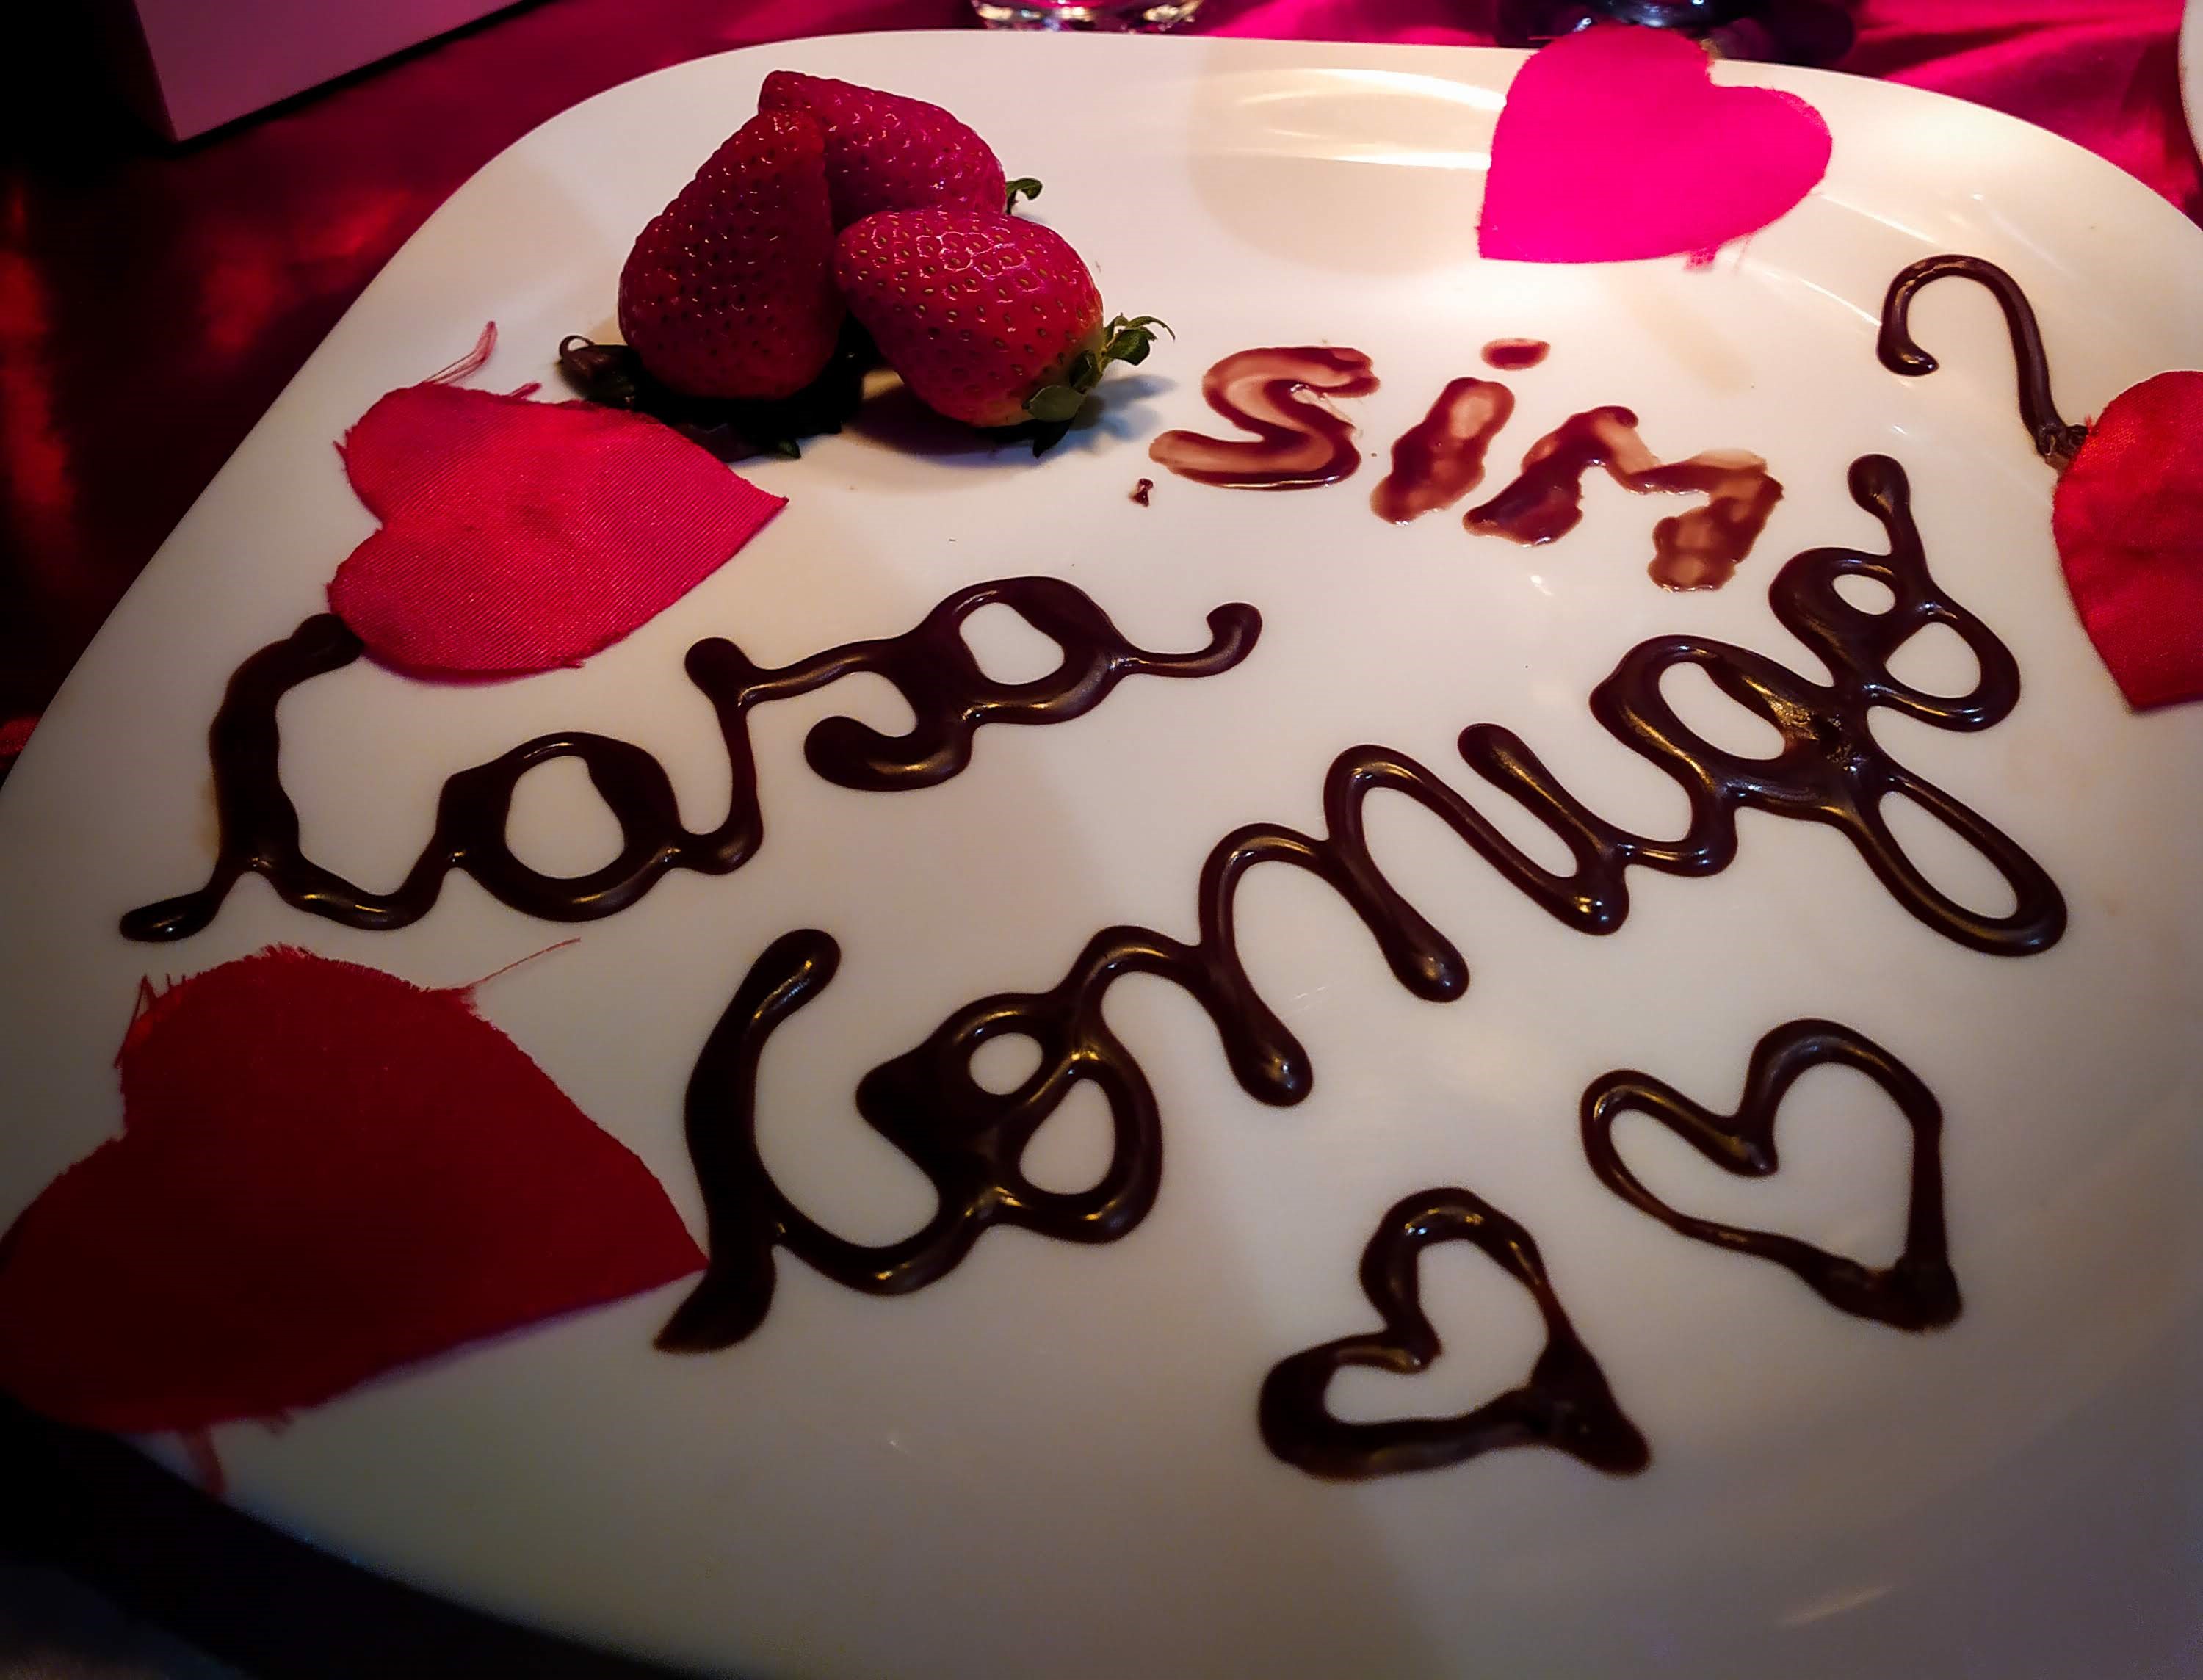 Casa
comigo?
sim